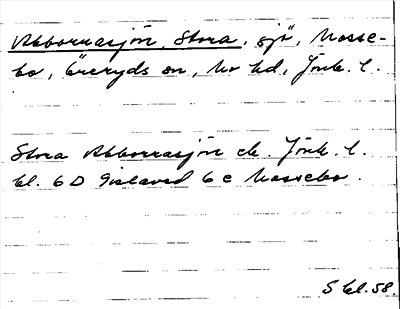 Abborrasjön, Stora, sjö, Mosse-
bo, Öreryds sn, Mo hd, Jönk. l.
Stora Abborrasjön ek. Jönk. l.
bl. 6 D Gislaved 6 e Mossebo.
S bl. 58.